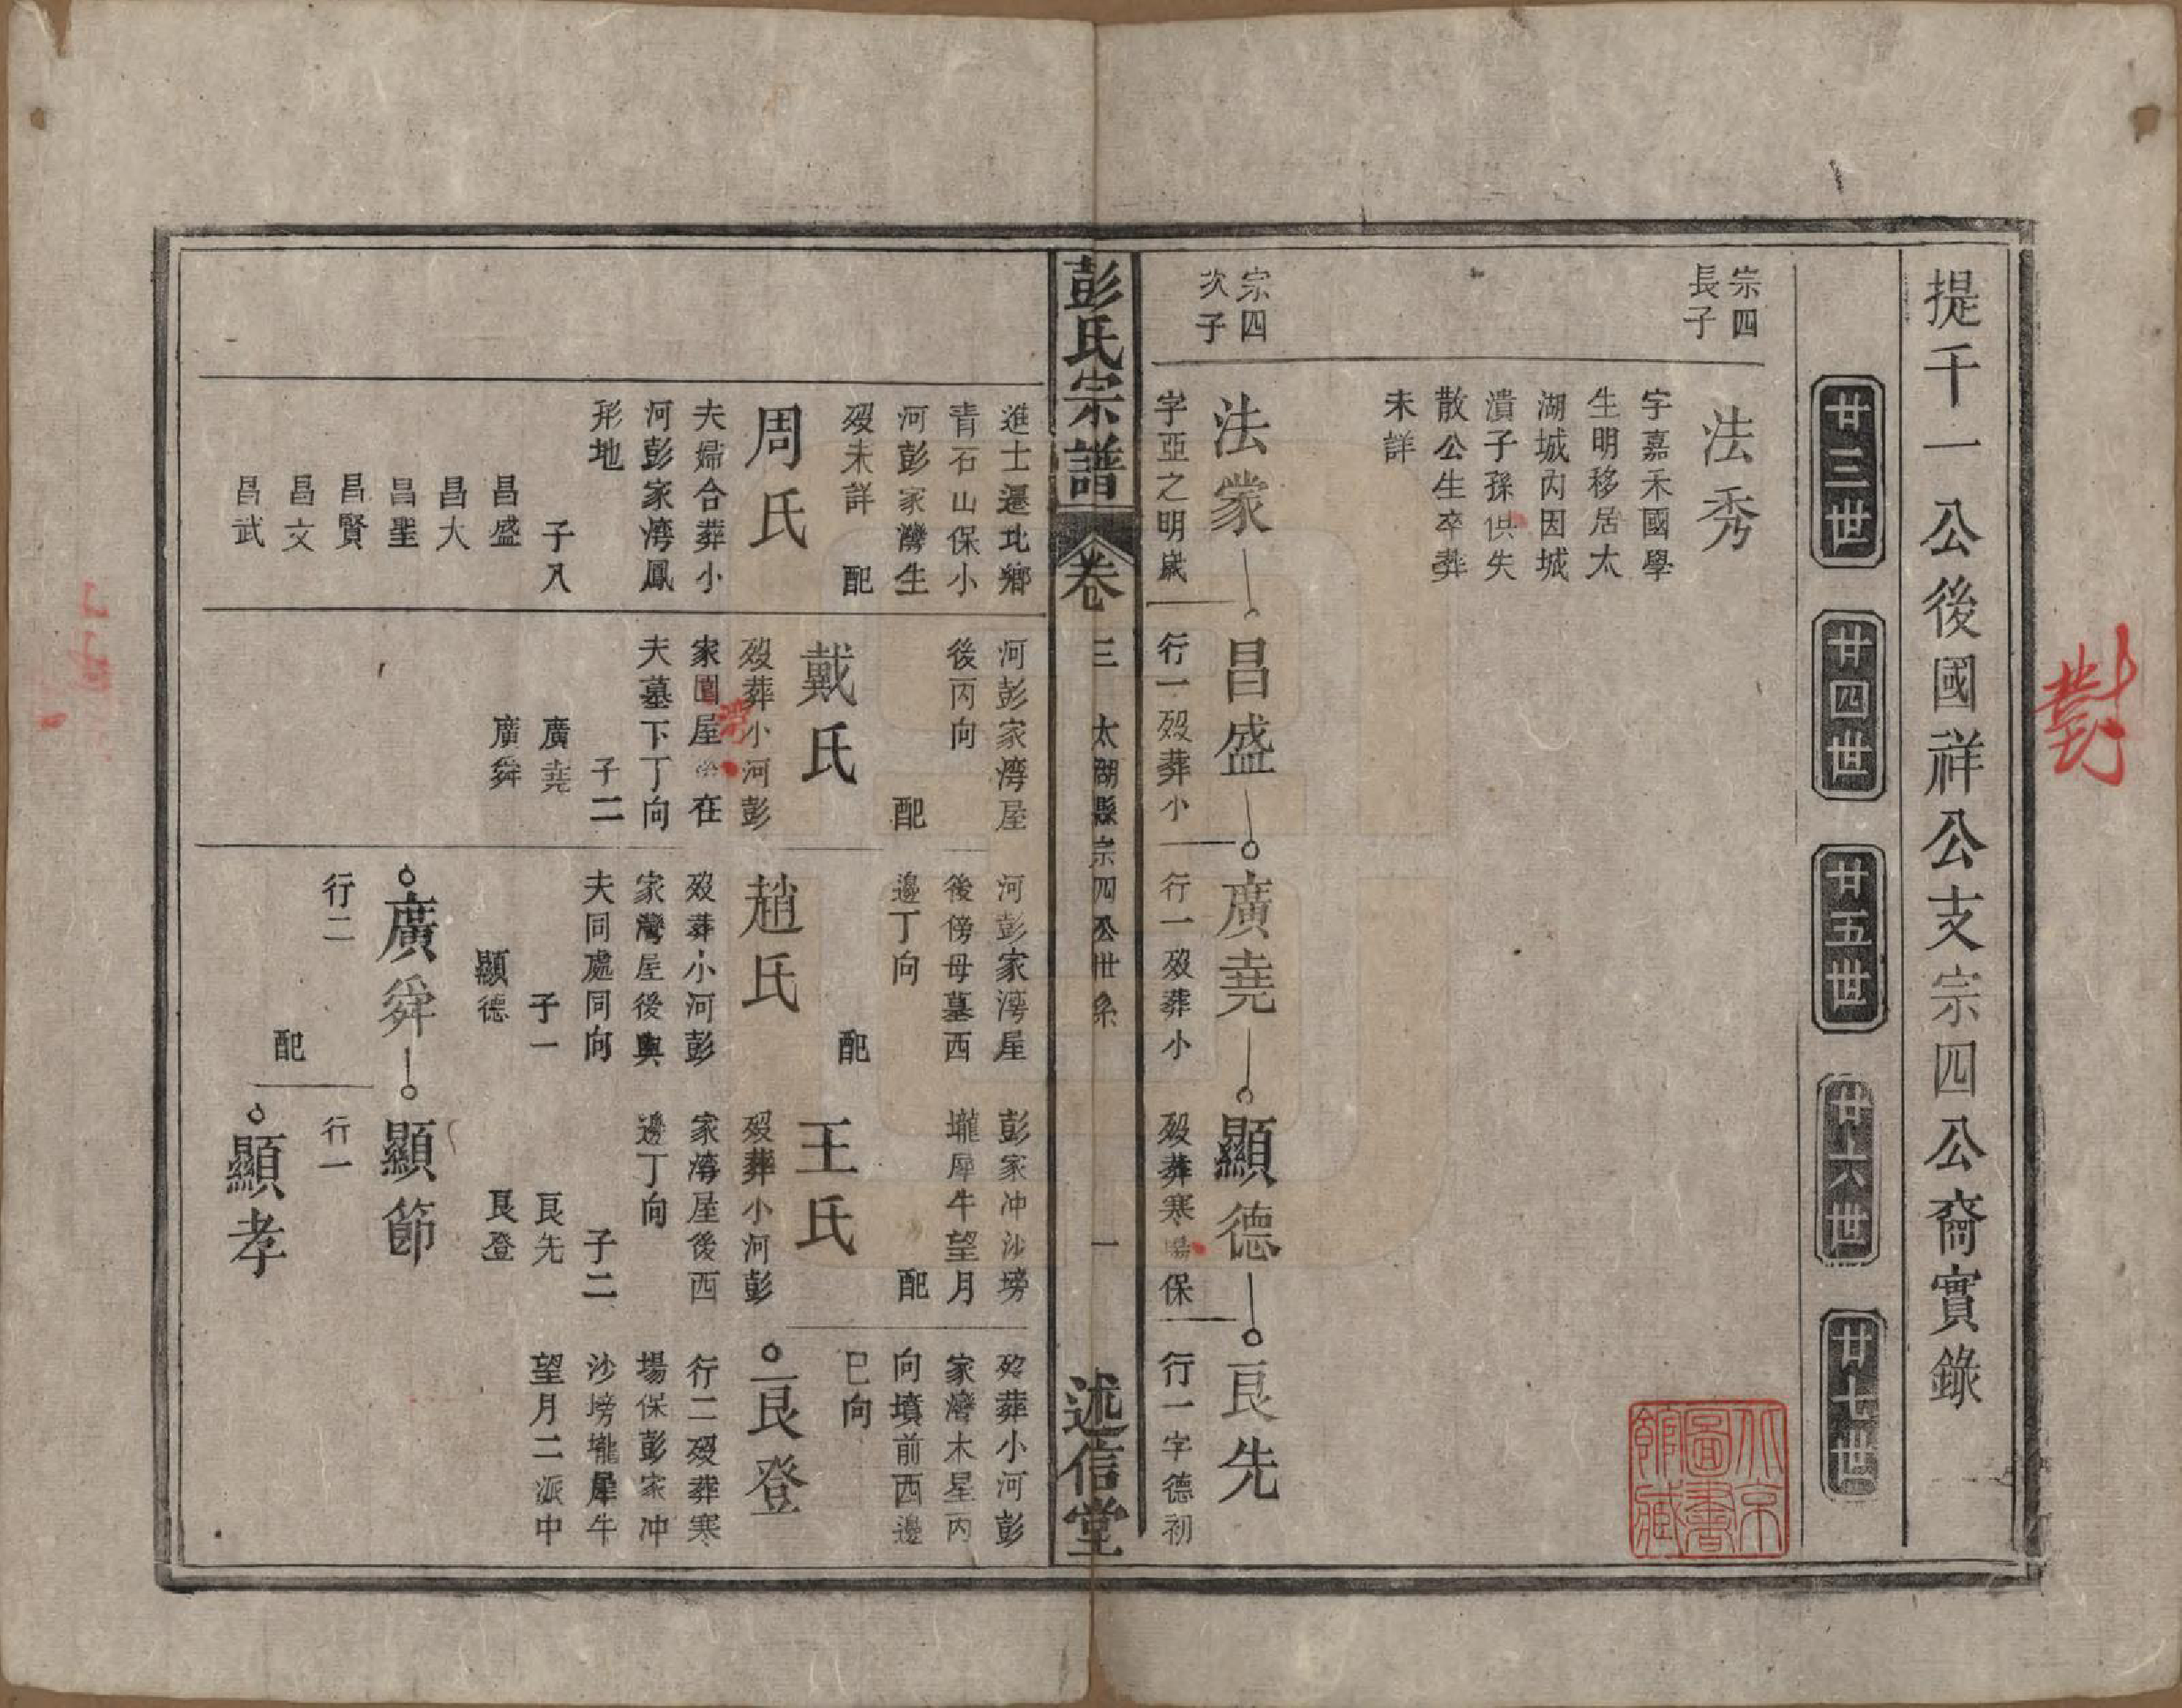 提千一公後國祥公支宗四公裔實錄
廿三世
廿四世
廿五世
廿六世
廿七世
宗四
長子
法秀
字嘉禾國學
生明移居太
湖城內因城
潰子孫俱失
散公生卒葬
未詳
宗四
次子
法蒙
字亞之明歲
昌盛
行一歿葬小
廣堯
行一歿葬小
顯德
歿葬寒場保
良先
行一字德初
彭氏宗譜
卷三
太湖縣宗四公世系
一
述信堂
進士遷北鄉
青石山保小
河彭家灣生
歿未詳
配
周氏
夫婦合葬小
河彭家湾鳳
形地
子八
昌盛
昌大
昌聖
昌賢
昌文
昌武
河彭家湾屋
後丙向
配
戴氏
歿葬小河彭
家屋在
夫墓下丁向
子二
廣堯
廣舜
河彭家湾屋
後傍母墓西
邊丁向
配
趙氏
歿葬小河彭
家灣屋後與
夫同處同向
子一
顯德
廣舜
行二
配
彭家冲沙塝
壠犀牛望月
配
王氏
歿葬小河彭
家灣屋後西
邊丁向
子二
良先
良登
顯節
行一
顯孝
歿葬小河彭
家灣木星丙
向墳前西邊
巳向
良登
行二歿葬寒
場保彭家冲
沙塝壠犀牛
望月二派中
對
北京
圖書
館藏